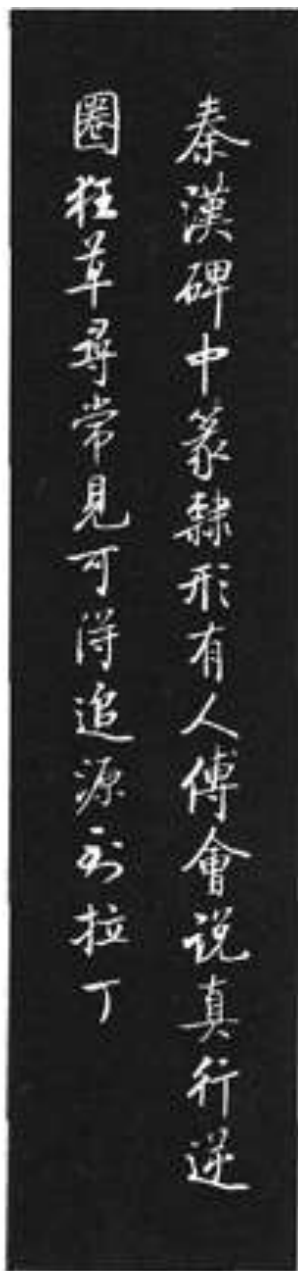 秦漢碑中篆隸形有人傅會説真行逆
圈狂草尋常見可得追源到拉丁